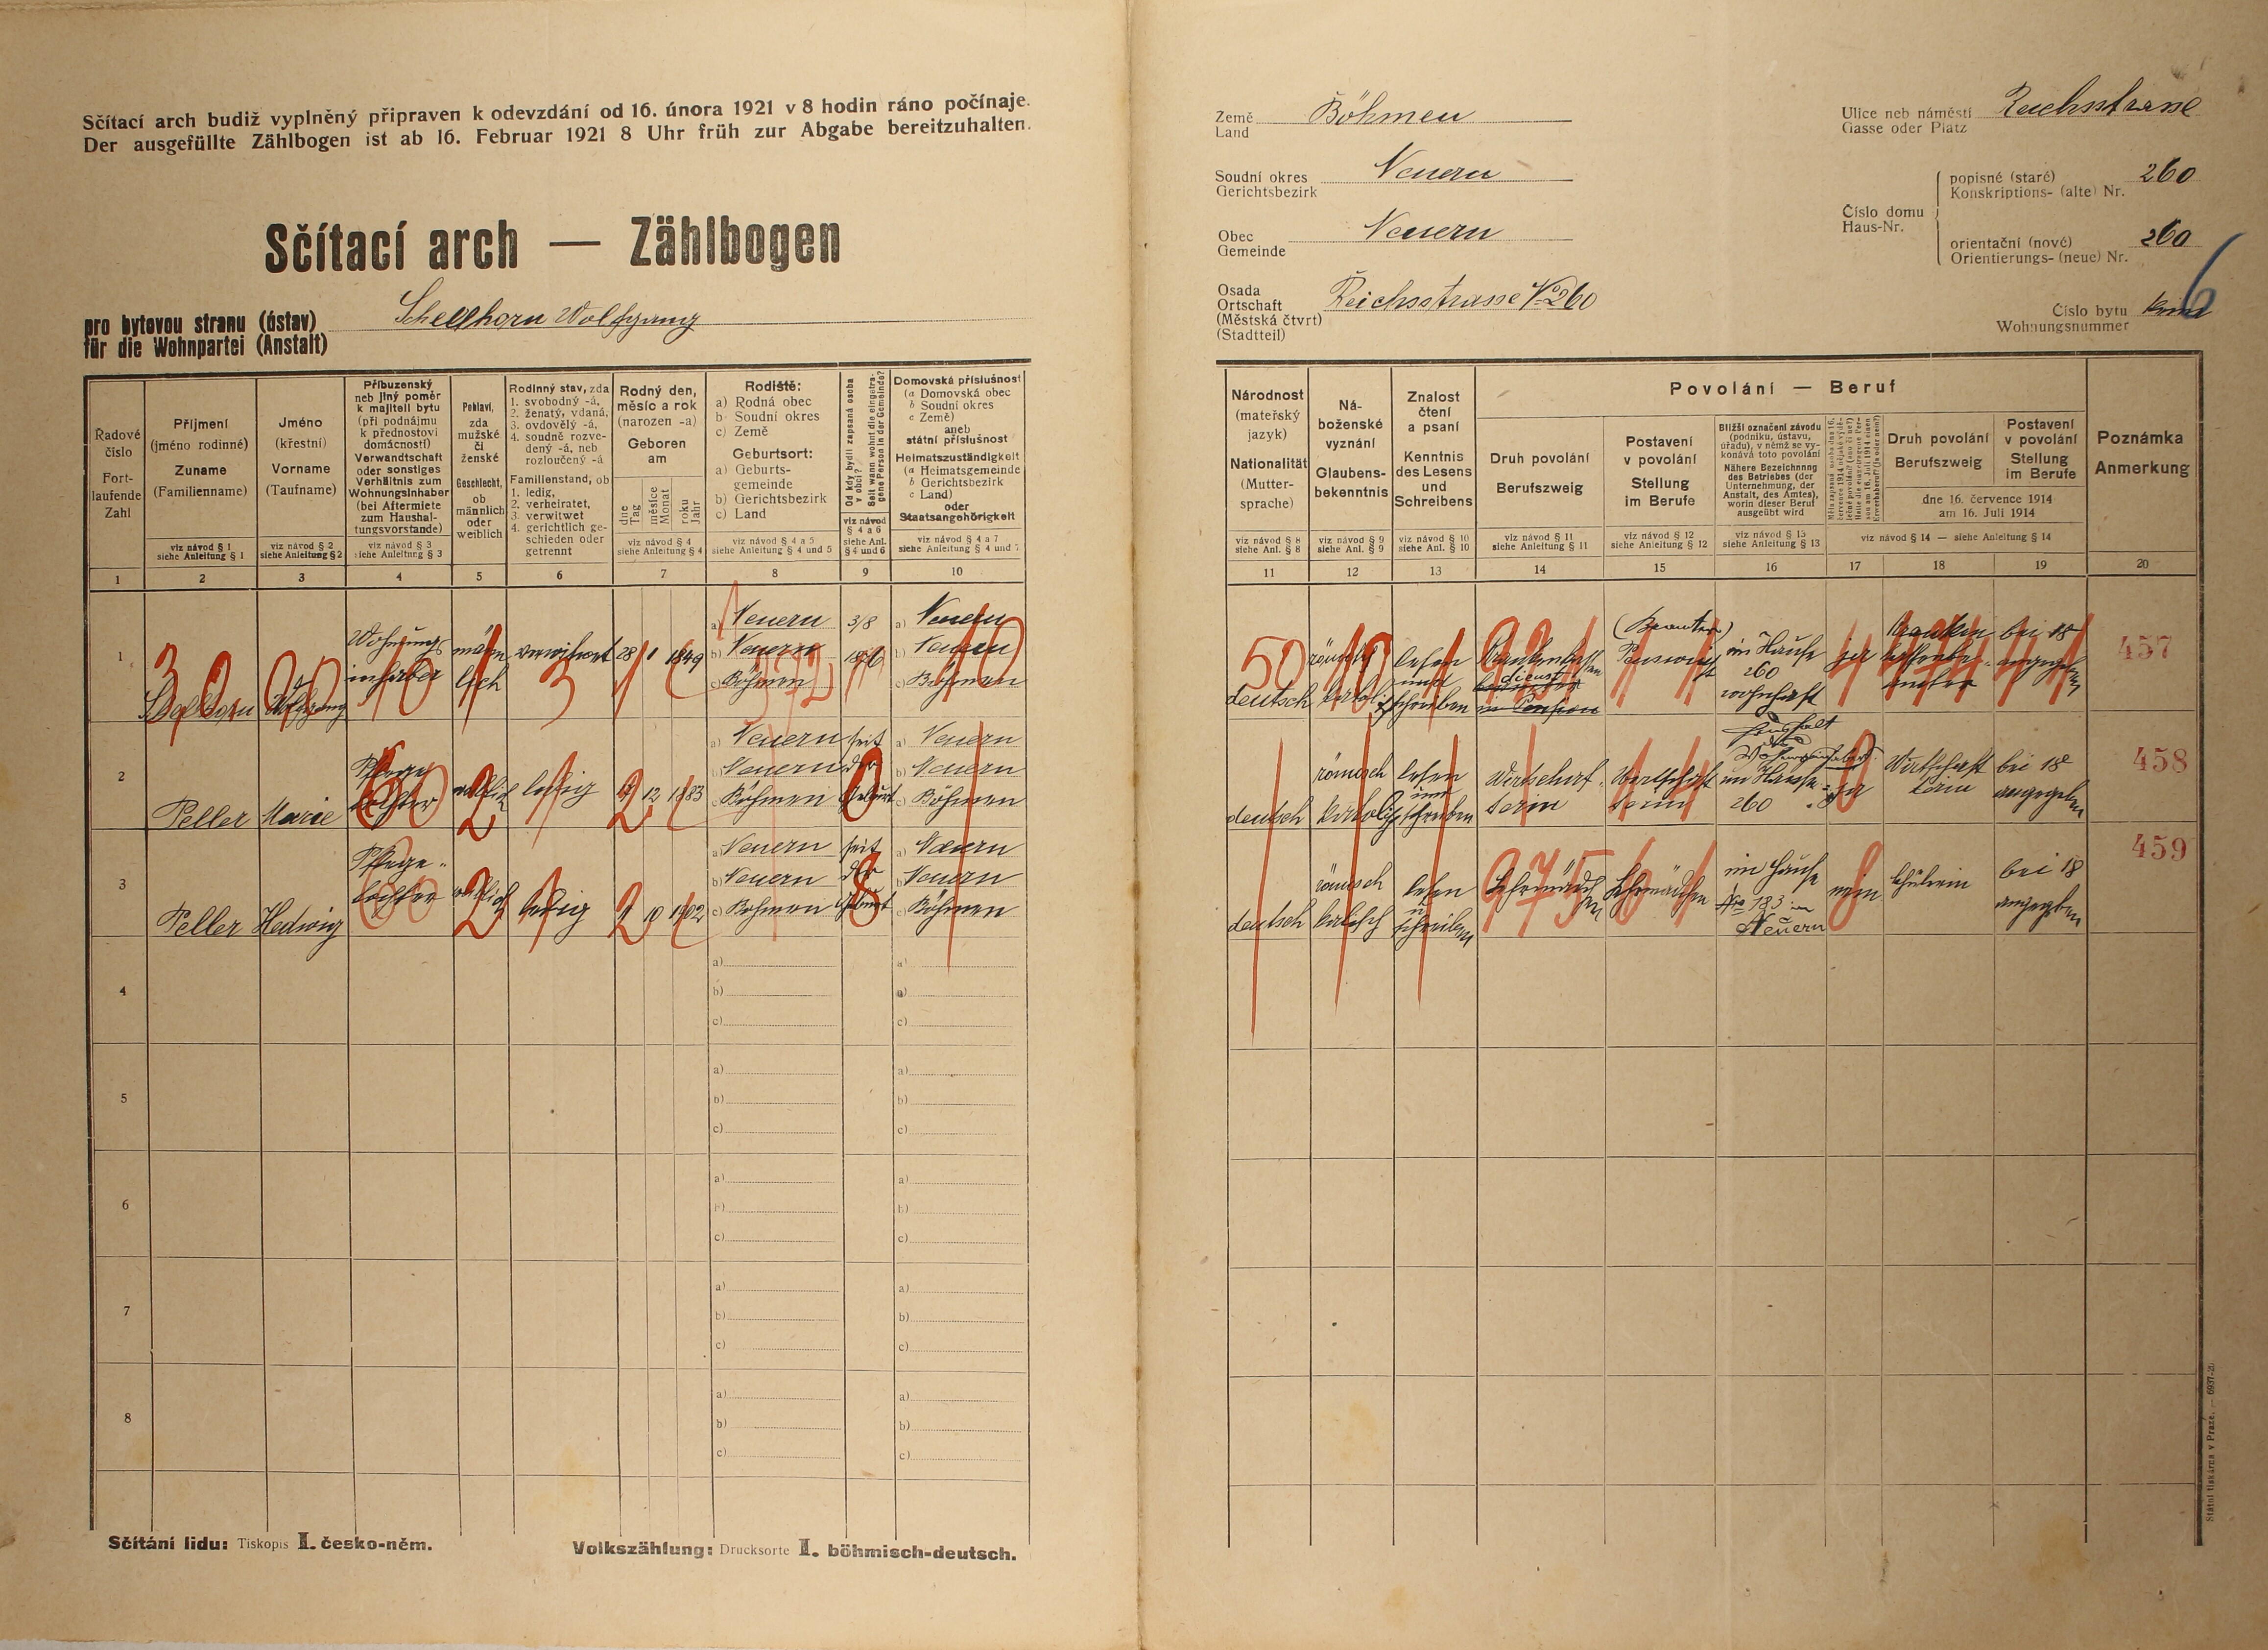 Sčítací arch budiž vyplněný připraven k odevzdání od 16. února 1921 v 8 hodin ráno počínaje.
Der ausgefüllte Zählbogen ist ab 16. Februar 1921 8 Uhr früh zur Abgabe bereitzuhalten.
Sčítací arch — Zählbogen
pro bytovou stranu (ústav)
für die Wohnpartei (Anstalt)
Schellhorn Wolfgang
Země Böhmen
Land
Soudní okres Neuern
Gerichtsbezirk
Obec Neuern
Gemeinde
Osada
Ortschaft Reichsstrasse No 260
(Městská čtvrt)
(Stadtteil)
Ulice neb náměstí Reichsstrasse
Gasse oder Platz
Číslo domu
Haus-Nr.
popisné (staré) 260
Konskriptions- (alte) Nr.
orientační (nové) 260
Orientierungs- (neue) Nr.
Číslo bytu 6
Wohnungsnummer
Řadové číslo
Fortlaufende Zahl
1
Příjmení
(jméno rodinné)
Zuname
(Familienname)
viz návod § 1
siehe Anleitung § 1
2
Jméno
(křestní)
Vorname
(Taufname)
viz návod § 2
siehe Anleitung § 2
3
Příbuzenský
neb jiný poměr
k majiteli bytu
(při podnájmu
k přednostovi
domácnosti)
Verwandtschaft
oder sonstiges
Verhältnis zum
Wohnungsinhaber
(bei Aftermiete
zum Haushal-
tungsvorstande)
viz návod § 3
siehe Anleitung § 3
4
Pohlaví,
zda
mužské
či
ženské
Geschlecht,
ob
männlich
oder
weiblich
5
Rodinný stav, zda
1. svobodný -á,
2. ženatý, vdaná,
3. ovdovělý -á,
4. soudně rozve-
dený -á, neb
rozloučený -á
Familienstand, ob
1. ledig,
2. verheiratet,
3. verwitwet
4. gerichtlich ge-
schieden oder
getrennt
6
Rodný den,
měsíc a rok
(narozen -a)
Geboren
am
dne
Tag
měsíce
Monat
roku
Jahr
viz návod § 4
siehe Anleitung § 4
7
Rodiště:
a) Rodná obec
b) Soudní okres
c) Země
Geburtsort:
a) Geburts-
gemeinde
b) Gerichtsbezirk
c) Land
viz návod § 4 a 5
siehe Anleitung § 4 und 5
8
Od kdy bydlí zapsaná osoba
v obci?
Seit wann wohnt die eingetra-
gene Person in der Gemeinde?
viz návod
§ 4 a 6
siehe Anl.
§ 4 und 6
9
Domovská příslušnost
(a Domovská obec
b Soudní okres
c Země)
aneb
státní příslušnost
Heimatszuständigkeit
(a Heimatsgemeinde
b Gerichtsbezirk
c Land)
oder
Staatsangehörigkeit
viz návod § 4 a 7
siehe Anleitung § 4 und 7
10
Národnost
(mateřský
jazyk)
Nationalität
(Mutter-
sprache)
viz návod § 8
siehe Anl. § 8
11
Ná-
boženské
vyznání
Glaubens-
bekenntnis
viz návod § 9
siehe Anl. § 9
12
Znalost
čtení
a psaní
Kenntnis
des Lesens
und
Schreibens
viz návod § 10
siehe Anl. § 10
13
Povolání — Beruf
Druh povolání
Berufszweig
viz návod § 11
siehe Anleitung § 11
14
Postavení
v povolání
Stellung
im Berufe
viz návod § 12
siehe Anleitung § 12
15
Bližší označení závodu
(podniku, ústavu,
úřadu), v němž se vy-
konává toto povolání
Nähere Bezeichnung
des Betriebes (der
Unternehmung, der
Anstalt, des Amtes),
worin dieser Beruf
ausgeübt wird
viz návod § 13
siehe Anleitung § 13
16
17
Druh povolání
Berufszweig
Postavení
v povolání
Stellung
im Berufe
dne 16. července 1914
am 16. Juli 1914
viz návod § 14 — siehe Anleitung § 14
18
19
Poznámka
Anmerkung
20
1
Schellhorn Wolfgang
Wohnungs
inhaber
männ
lich
verwitwet
28 1 1849
a) Neuern
b) Neuern
c) Böhmen
3/8
a) Neuern
b) Neuern
c) Böhmen
deutsch
lesen
und
schreiben
(Beamter)
im Hause
260
wohnhaft
ja
bei 18
angegeben
457
2
Peller Marie
Pflege
tochter
weiblich
ledig
12 1883
a) Neuern
b) Neuern
c) Böhmen
seit
der
Geburt
a) Neuern
b) Neuern
c) Böhmen
deutsch
römisch
katholisch
lesen
und
schreiben
Wirtschaf-
terin
im Hause
260
ja
bei 18
angegeben
458
3
Peller Hedwig
Pflege-
tochter
weiblich
ledig
10 1902
a) Neuern
b) Neuern
c) Böhmen
seit
der
Geburt
a) Neuern
b) Neuern
c) Böhmen
deutsch
römisch
lesen
u
schreiben
Lehrmädchen
im Hause
No 183 in
Neuern
nein
Schülerin
bei 18
angegeben
459
4
a)
b)
c)
5
a)
b)
c)
6
a)
b)
c)
7
a)
b)
c)
8
a)
b)
c)
Sčítání lidu: Tiskopis I. česko-něm.
Volkszählung: Drucksorte I. böhmisch-deutsch.
Státní tiskárna v Praze. — 6937-20